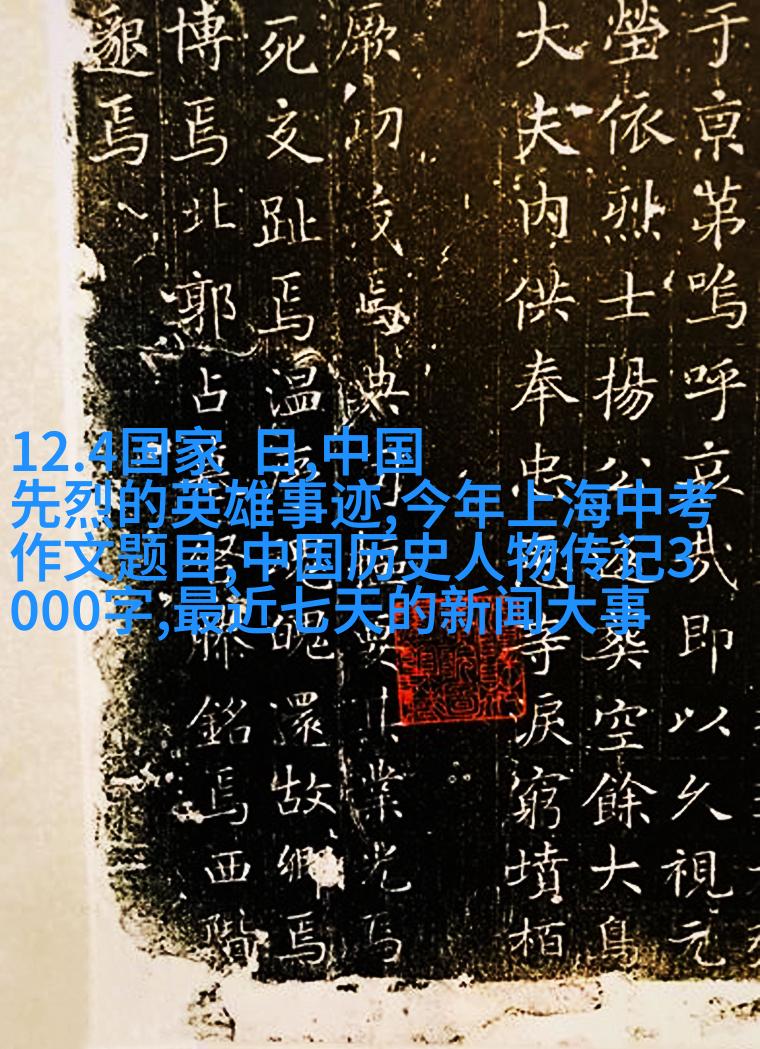 12.4国家 日,中国
先烈的英雄事迹,今年上海中考
作文题目,中国历史人物传记3
000字,最近七天的新闻大事
于京第嗚呼哀哉即以久視元
塋依烈士揚公返葬空餘大鳥
大夫内供奉忠寺淚窮墳栢
厥功茂焉典司業光焉
死交趾焉温魄還故鄉焉
博焉北郭占銘焉西階
邈焉